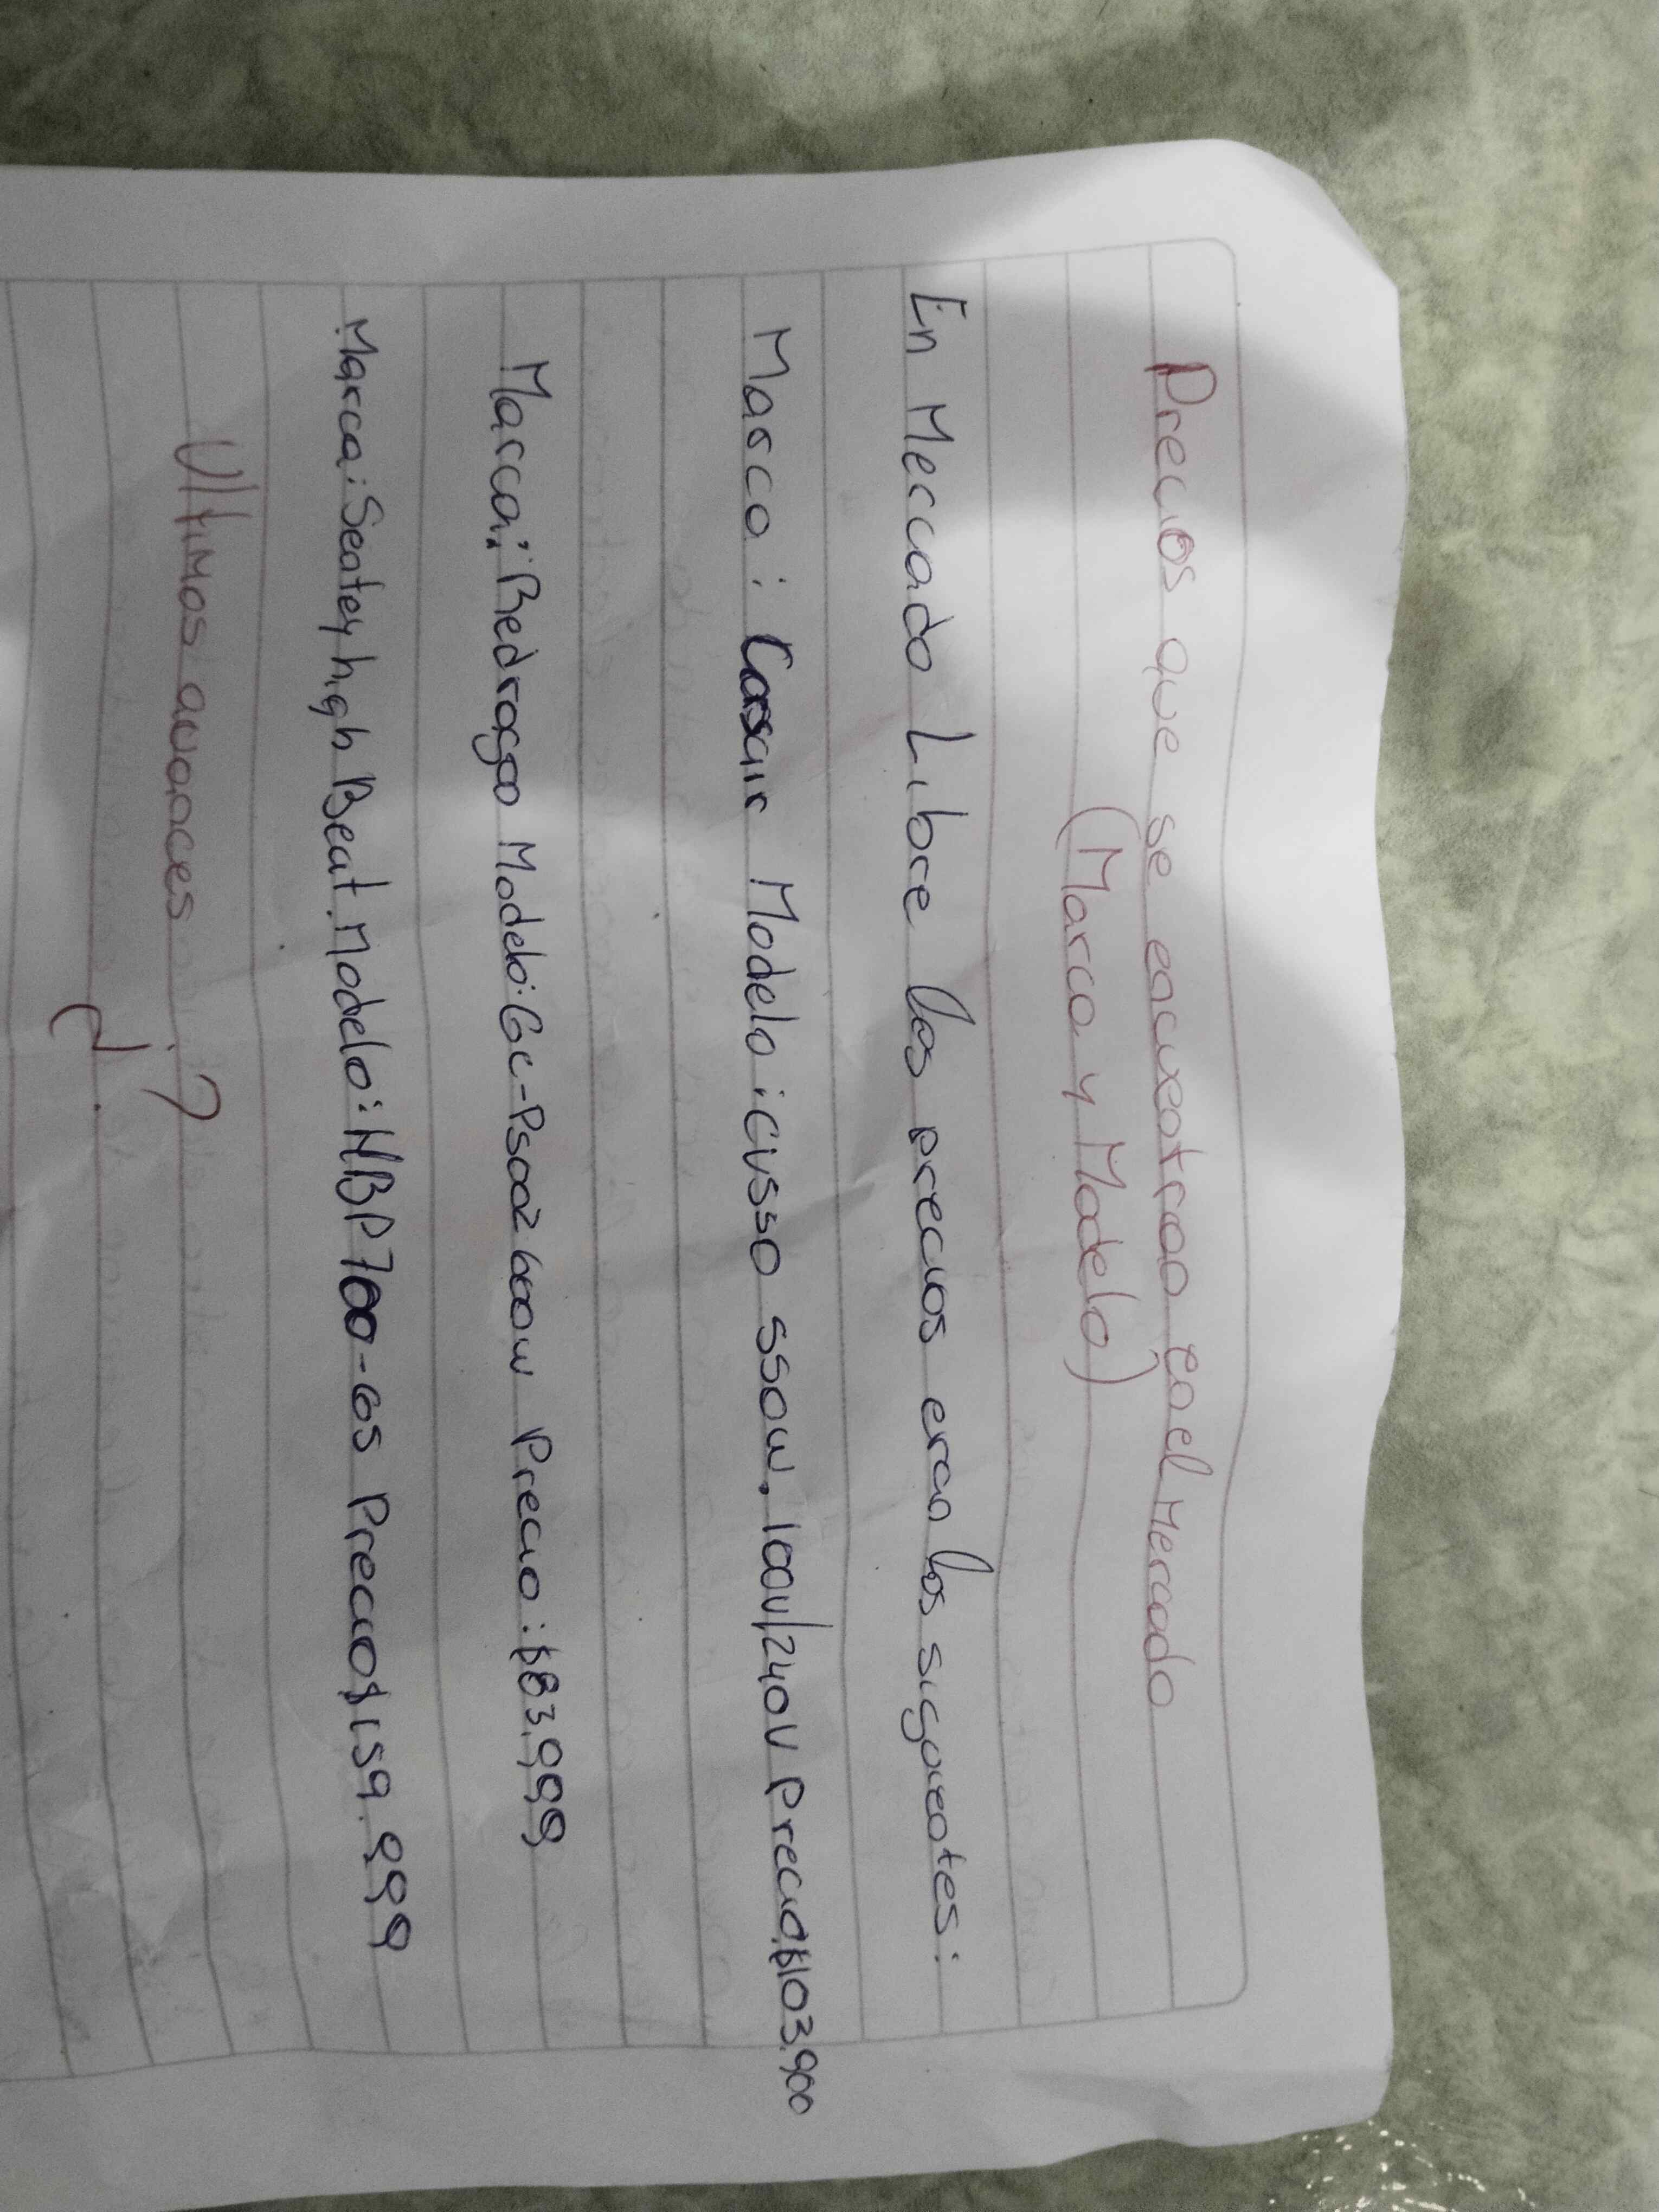 Precios que se encuentran en el Mercado
(Marca y Modelo)
En Mercado Libre los precios eran los siguientes:
Marca: Corsair Modelo: CV550 550W, 100V/240V Precio $103.900
Marca: Bedragon Modelo: Gc-Ps002 600w Precio: $83.999
Marca: Seatey high Beat Modelo: HBP700-GS Precio $159.999
Ultimos avances ?